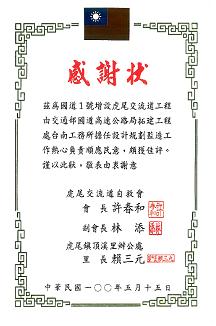 感謝狀
茲為國道1號增設虎尾交流道工程
由交通部國道高速公路局拓建工程
處台南工務所擔任設計規劃監造工
作熱心負責順應民意，頗獲佳評。
謹以此狀，敬表由衷謝意
虎尾交流道自救會
會長 許春和
副會長 林添
虎尾鎮頂溪里辦公處
里長 賴三元
中華民國一〇〇年五月十五日